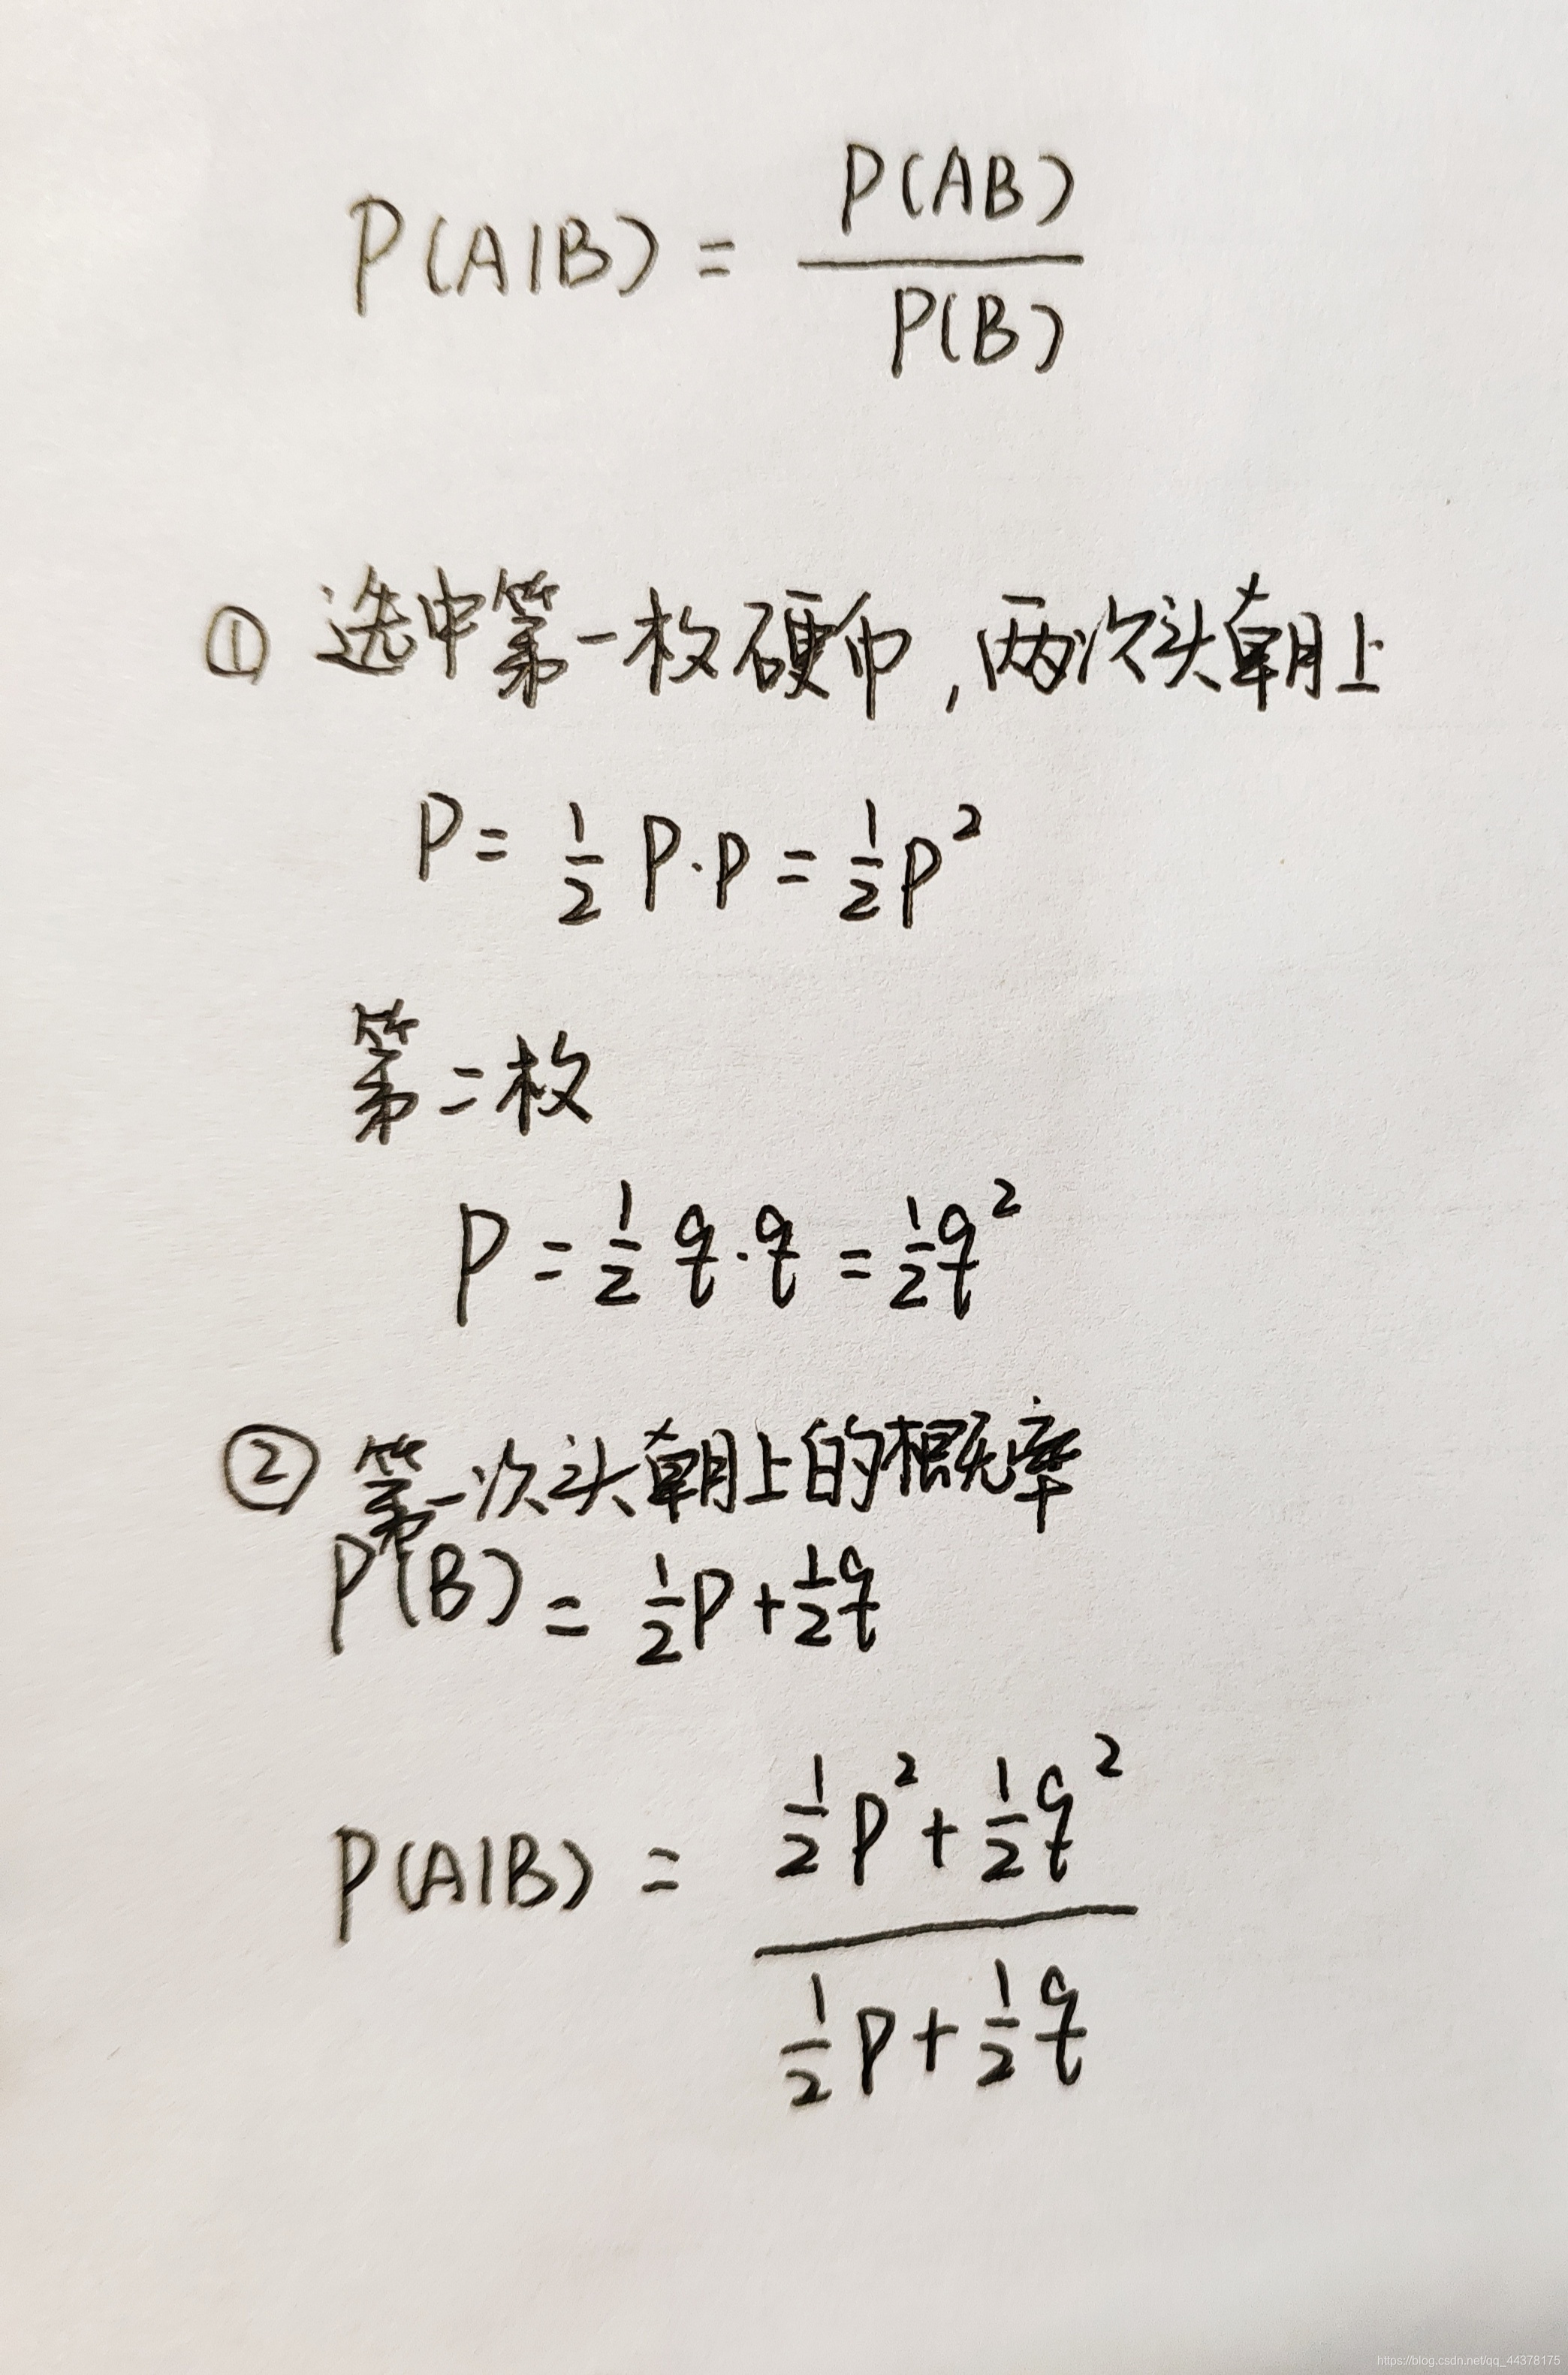 P(A|B) = P(AB) / P(B)
① 选中第一枚硬币,两次头朝上
P = 1/2 P·P = 1/2 P²
第二枚
P = 1/2 q·q = 1/2 q²
② 第一次头朝上的概率
P(B) = 1/2 P + 1/2 q
P(A|B) = (1/2 P² + 1/2 q²) / (1/2 P + 1/2 q)
https://blog.csdn.net/qq_44378175